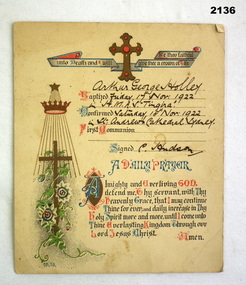 2136
Be thou faithful
unto Death and I will give thee a crown of life
Arthur George Holley
Baptized Friday 17 Nov. 1922
in H.M.A.S. "Tingira"
Confirmed Saturday 18 Nov. 1922
in St. Andrew's Cathedral Sydney.
First Communion
Signed C. Hudson
A DAILY PRAYER
Almighty and Everliving GOD,
defend me, Thy servant, with Thy
Heavenly Grace, that I may continue
Thine for ever: and daily increase in Thy
Holy Spirit more and more, until I come unto
Thine Everlasting Kingdom Through our
Lord Jesus Christ.
Amen.